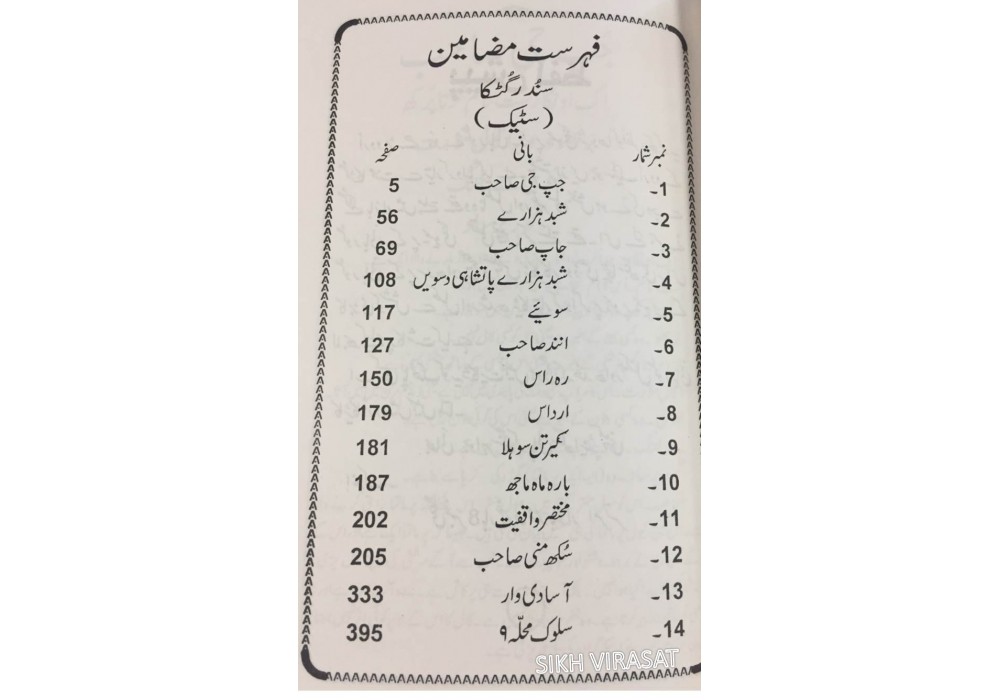 فہرست مضامین
سُندر گُٹکا
(سٹیک)
نمبر شمار بانی صفحہ
1۔ جپ جی صاحب 5
2۔ شبد ہزارے 56
3۔ جاپ صاحب 69
4۔ شبد ہزارے پاتشاہی دسویں 108
5۔ سویّے 117
6۔ انند صاحب 127
7۔ رہ راس 150
8۔ ارداس 179
9۔ کیرتن سوہلا 181
10۔ بارہ ماہ ماجھ 187
11۔ مختصر واقفیت 202
12۔ سُکھ منی صاحب 205
13۔ آسا دی وار 333
14۔ سلوک محلّہ ۹ 395
SIKH VIRASAT